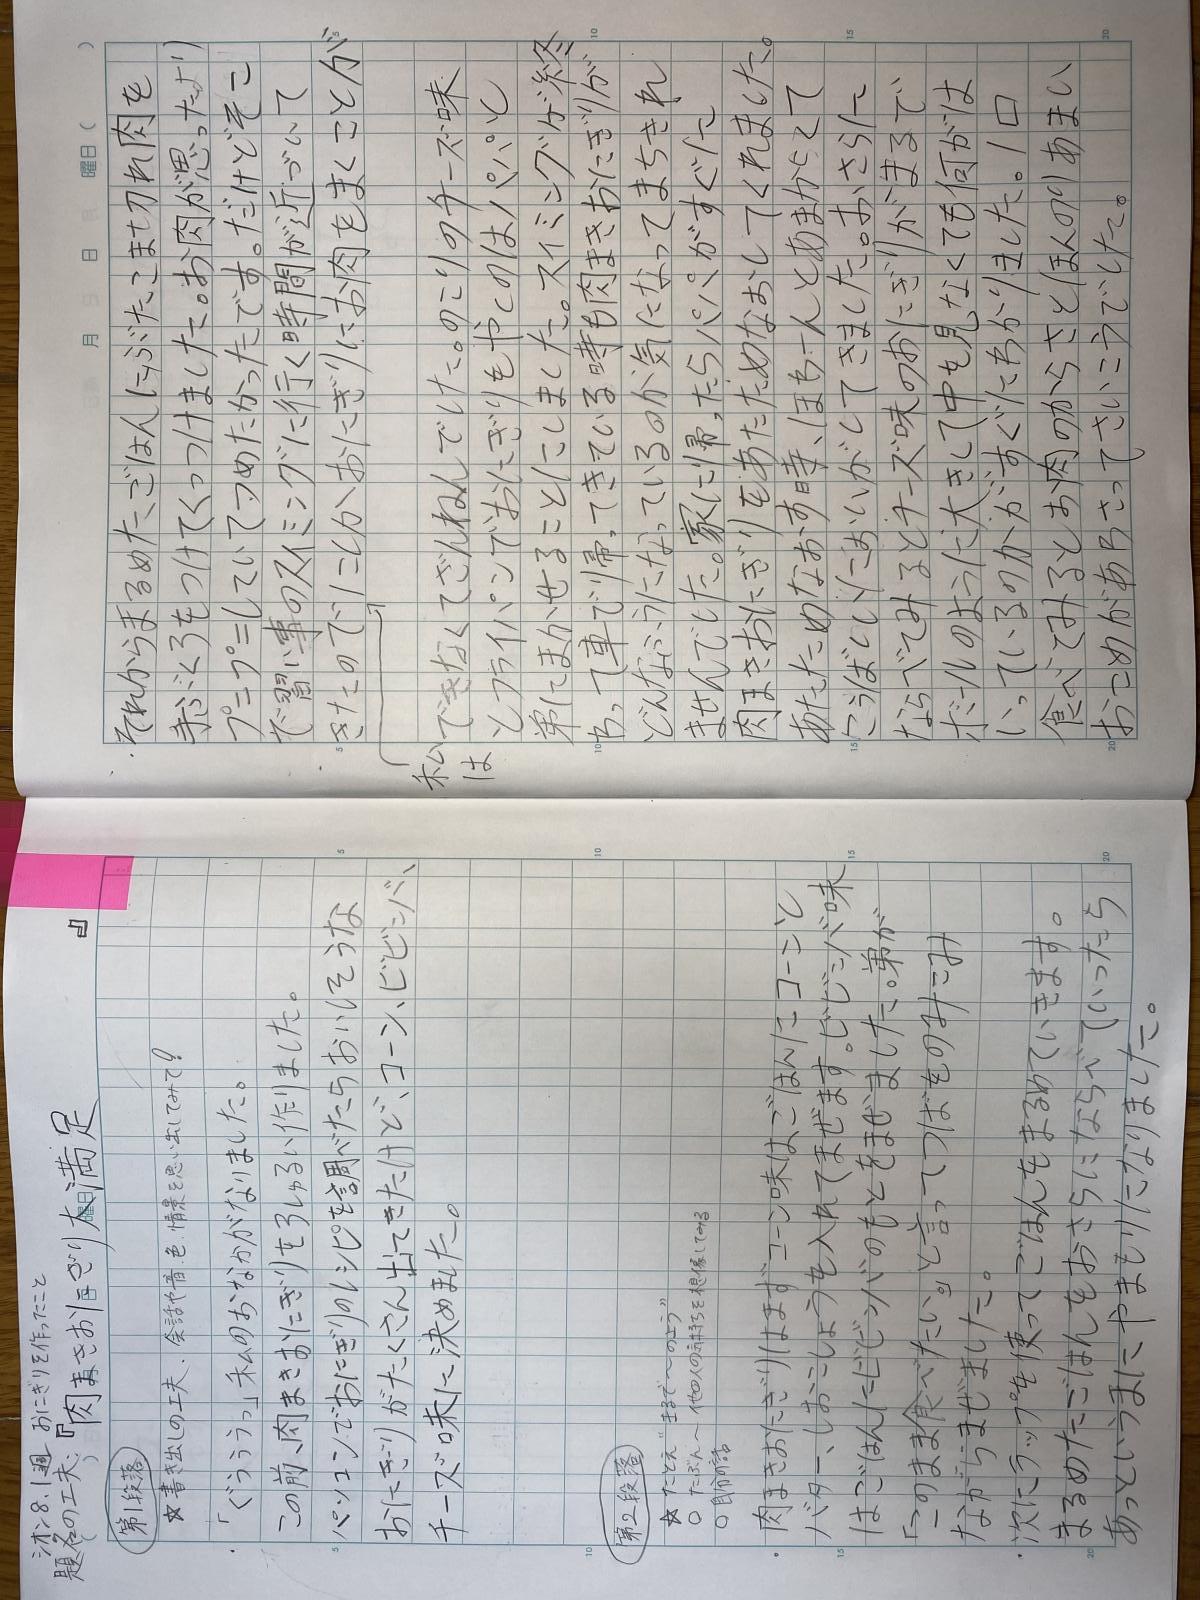 シオン8.1週 おにぎりを作ったこと
題名の工夫『肉まきおにぎり大満足』
第1段落
☆書き出しの工夫、会話や音、色、情景を思い出してみて?
「ぐううっ」私のおなかがなりました。
この前、肉まきおにぎりを3しゅるい作りました。
パソコンでおにぎりのレシピを調べたらおいしそうな
おにぎりがたくさん出てきたけど、コーン、ビビンバ、
チーズ味に決めました。
第2段落
☆たとえ"まるで〜のよう"
○たぶん〜他の人の気持ちを想像してみる
○自前の話
肉まきおにぎりはまずコーン味はごはんにコーンと
バター、しおこしょうを入れてまぜます。ビビンバ味
はごはんにビビンバのもとをまぜました。弟が
「このまま食べたい。」と言ってつばをのみこみ
ながらまぜました。
次にラップを使ってごはんをまるめていきます。
まるめたごはんをおさらにならべていったら
あっというまにやまもりになりました。
月 日 曜日( )
それからまるめたごはんにぶたこま切れ肉を
赤ぶくろをつけてくっつけました。お肉が思ったより
プニプニしていてつめたかったです。だけどそこ
で習い事のスイミングに行く時間が近づいて
きたので1こしかおにぎりにお肉をまくことが
私は
できなくてざんねんでした。のこりのチーズ味
とフライパンでおにぎりをやくのはパパと
弟にまかせることにしました。スイミングが終
わって車で帰ってきている時も肉まきおにぎりが
どんなふうになっているのか気になってまちきれ
ませんでした。家に帰ったらパパがすぐに
肉まきおにぎりをあたためなおしてくれました。
あたためなおす時、ほわ〜んとあまからくて
こうばしいにおいがしてきました。おさらに
ならべてみるとチーズ味のおにぎりがまるで
ボールのように大きくて中を見なくても何がは
いっているのかがすぐにわかりました。1口
食べてみるとお肉のからさとほんのりあまい
おこめがあわさってさいこうでした。